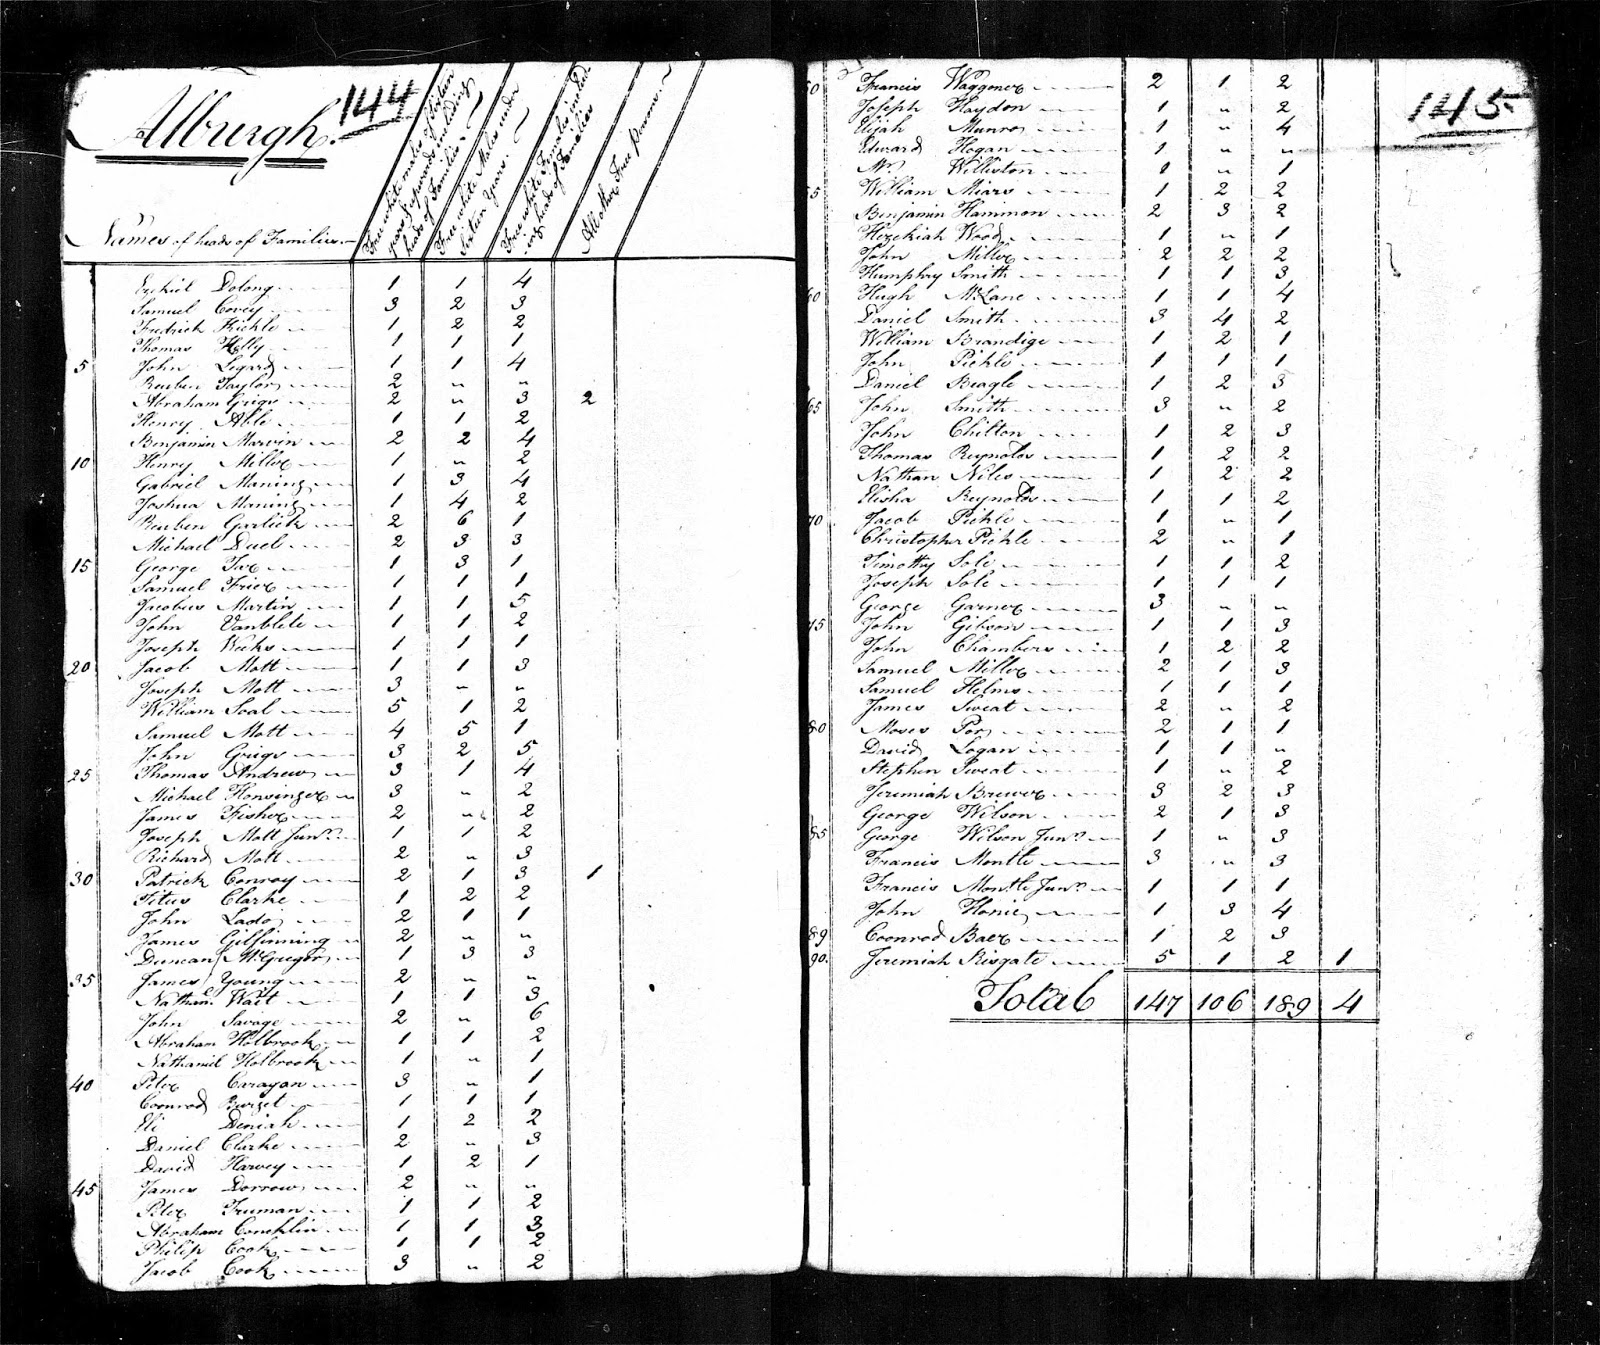 144
Alburgh.
Names of heads of Families.
Free white males of sixteen years & upwards including heads of Families.
Free white Males under sixteen Years.
Free white Females including heads of Families
All other Free Persons.
Ezekiel Dolong 1 1 4
Samuel Covey 3 2 3
Fredrick Hickle 1 2 2
Thomas Helly 1 1 1
5 John Legard 1 1 4
Reuben Taylor 2 " "
Abraham Grigs 2 " 3 2
Henry Able 1 1 2
Benjamin Marvin 2 2 4
10 Henry Miller 1 " 2
Gabriel Maning 1 3 4
Joshua Maning 1 4 2
Reuben Garlick 2 6 1
Michael Duel 2 3 3
15 George 1 3 1
Samuel Frier 1 1 1
Jacobus Martin 1 1 5
John Vanblete 1 1 2
Joseph Weeks 1 1 1
20 Jacob Mott 1 1 3
Joseph Mott 3 " "
William Soal 5 1 2
Samuel Mott 4 5 1
John Grigs 3 2 5
25 Thomas Andrews 3 1 4
Michael Honsinger 3 " 2
James Fisher 2 " 2
Joseph Mott Junr. 1 1 2
Richard Mott 2 " 3
30 Patrick Conroy 2 1 3 1
Titus Clarke 1 2 2
John Lado 2 1 1
James Gilfinning 2 " "
Duncan McGregor 1 3 3
35 James Young 2 " "
Nathanl. Wait 1 1 3
John Savage 2 " 6
Abraham Holbrook 1 1 2
Nathaniel Holbrook 1 " 1
40 Peter Carayan 3 " 1
Coonrod Burget 1 1 1
Eli Deniah 1 2 2
Daniel Clarke 2 " 3
David Harvey 1 2 1
45 James Dorrow 2 " "
Peter Truman 1 1 2
Abraham Concklin 1 1 3
Philip Cook 1 1 2
Jacob Cook 3 " 2
145
50 Francis Waggoner 2 1 2
Joseph Haydon 1 " 2
Elijah Munro 1 " 4
Edward Hogan 1 " "
Mr. Williston 1 " 1
55 William Miars 1 2 2
Benjamin Hammon 2 3 2
Hezekiah Wood 1 " 1
John Miller 2 2 2
Humphry Smith 1 1 3
60 Hugh McLane 1 1 4
Daniel Smith 3 4 2
William Brandige 1 2 1
John Pickle 1 1 1
Daniel Beagle 1 2 3
65 John Smith 3 " 2
John Chilton 1 2 3
Thomas Reynolds 1 2 2
Nathan Niles 1 2 2
Elisha Reynolds 1 1 2
70 Jacob Pickle 1 " 1
Christopher Pickle 2 " 1
Timothy Sole 1 1 2
Joseph Sole 1 1 1
George Garner 3 " "
75 John Gibson 1 1 3
John Chambers 1 2 2
Samuel Miller 2 1 3
Samuel Helms 1 1 1
James Sweat 2 " 2
80 Moses Por 2 1 1
David Logan 1 1 "
Stephen Sweat 1 " 2
Jeremiah Brewer 3 2 3
George Wilson 2 1 3
85 George Wilson Junr. 1 " 3
Francis Montle 3 " 3
Francis Montle Junr. 1 1 1
John Honie 1 3 4
89 Coonrod Baer 1 2 3
90. Jeremiah Risgate 5 1 2 1
Total 147 106 189 4